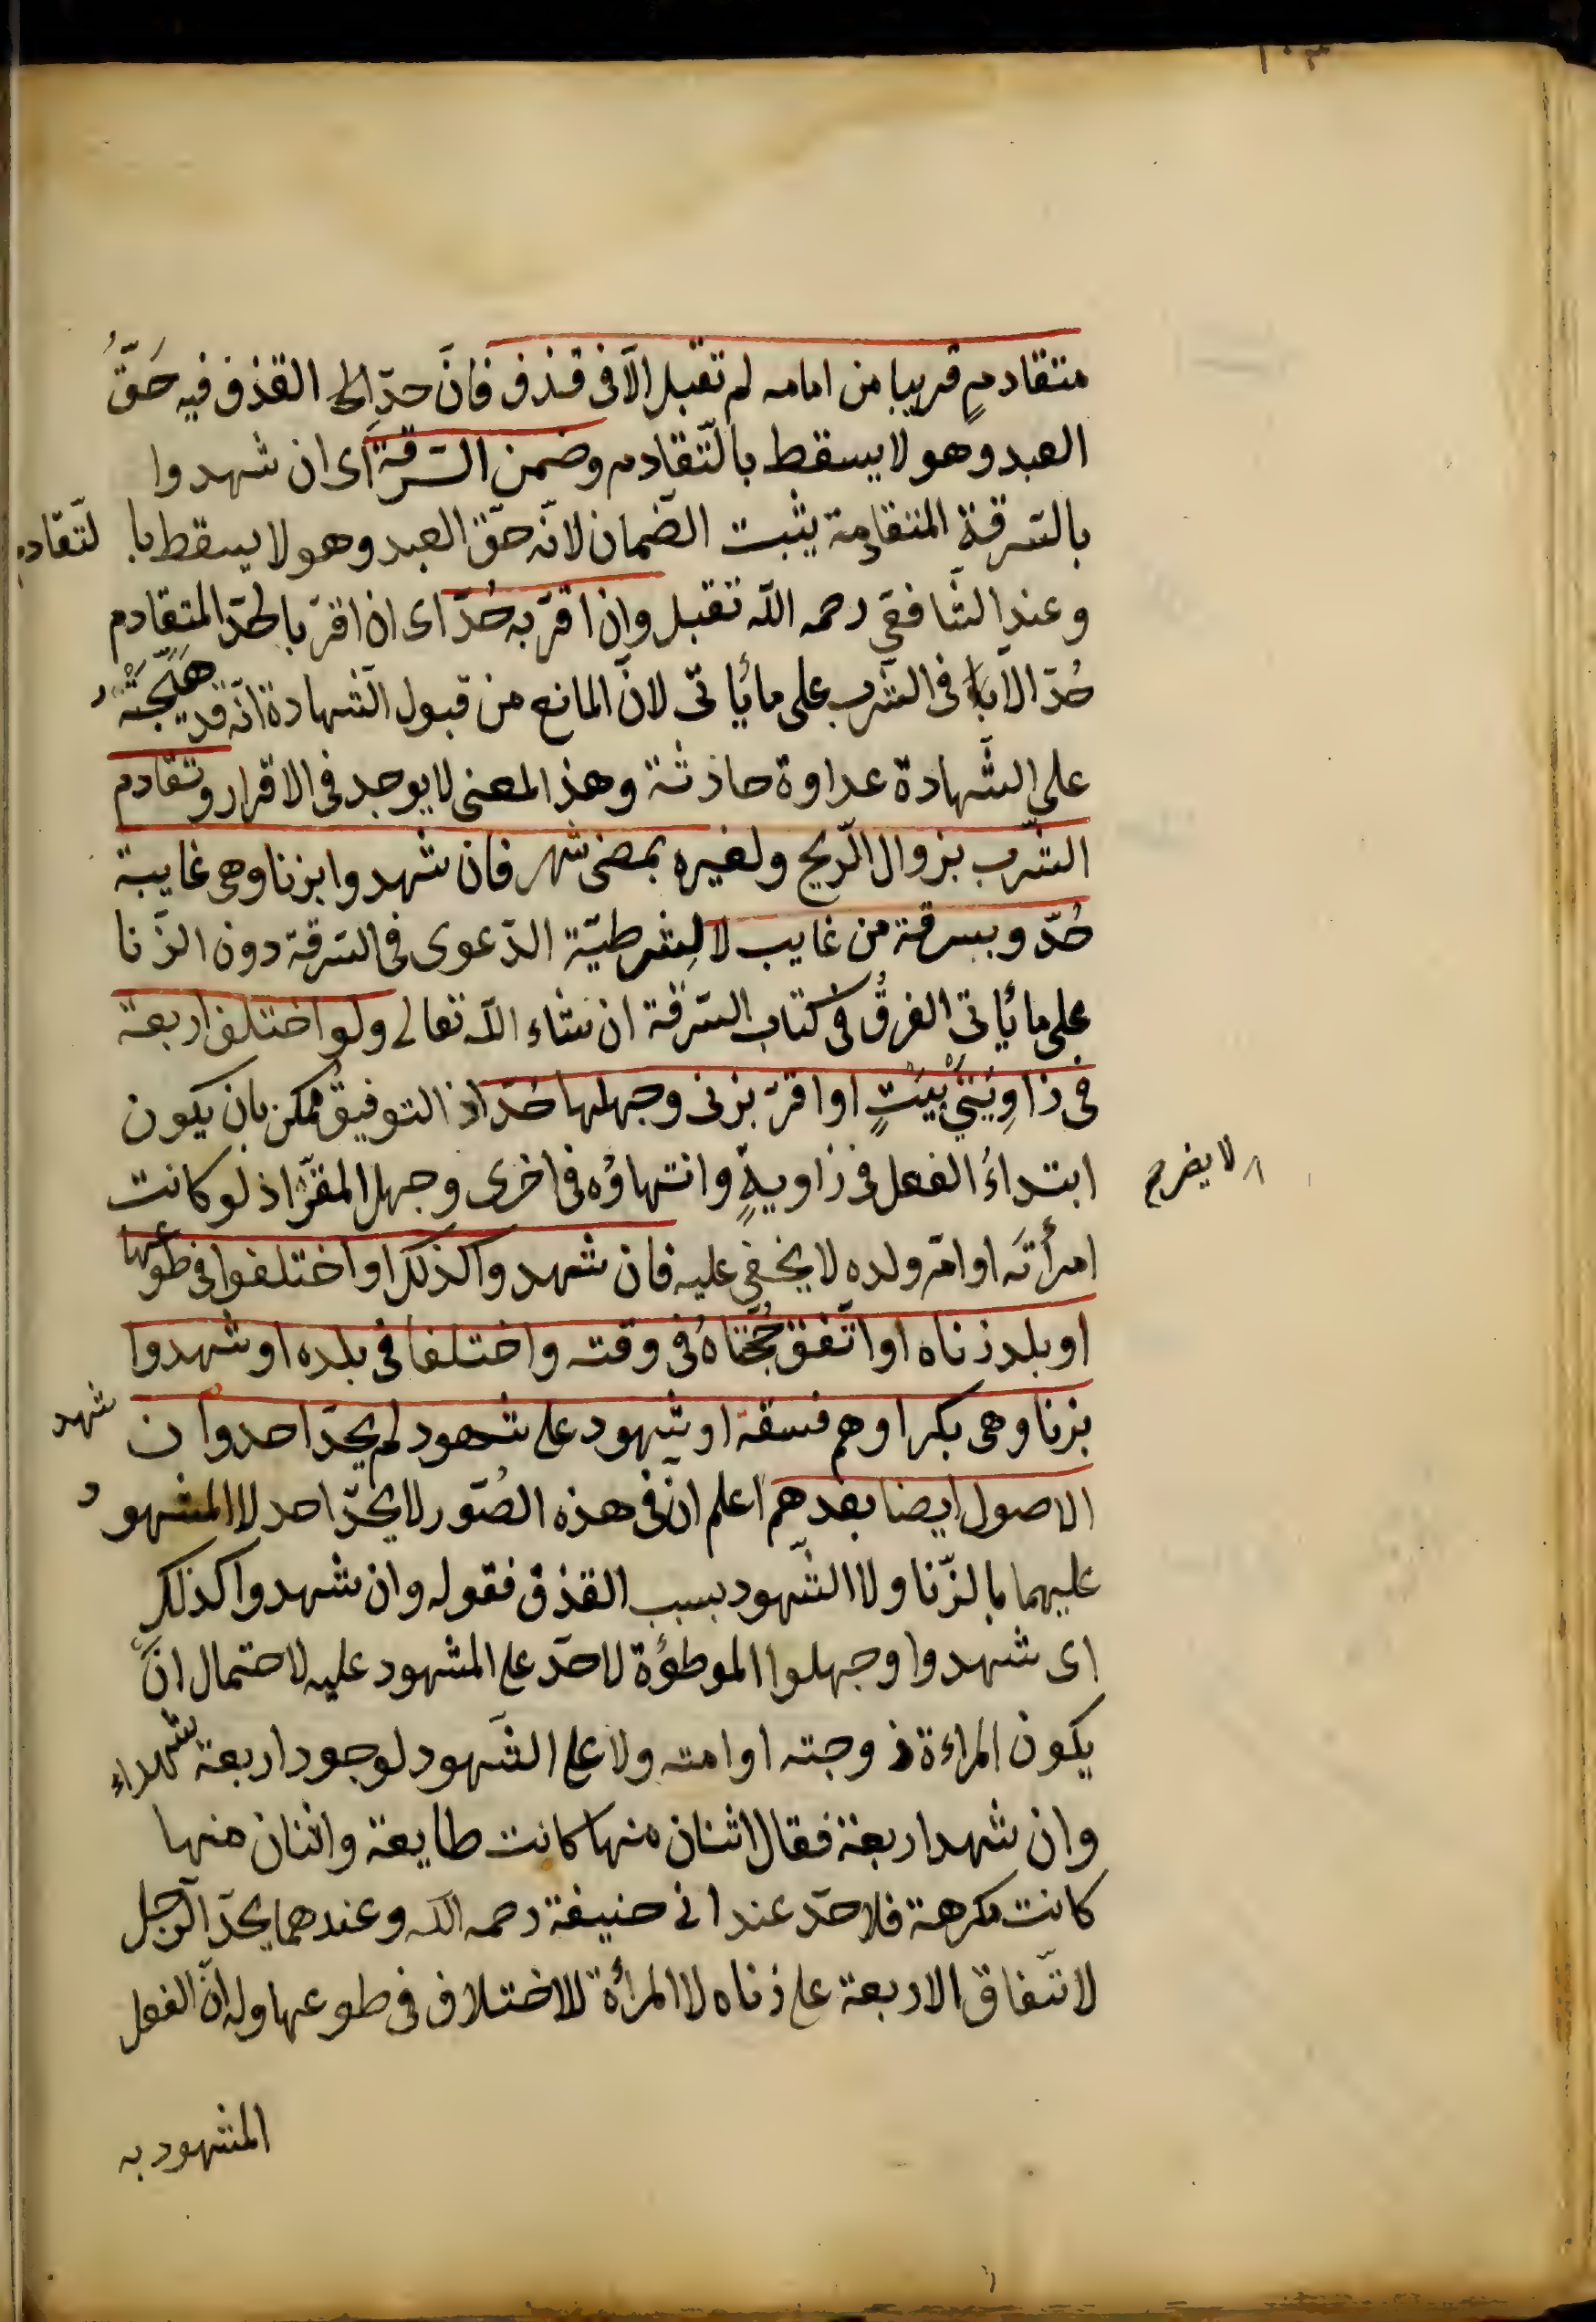 ١٠٣
متقادمٍ قريبا من امامه لم تقبل الّا فى قذف فانّ حدّ القذف فيه حَقُّ
العبد وهو لا يسقط بالتّقادم وضمن السّرقةَ اى ان شهدوا
بالسّرقة المتقادمة يثبت الضّمان لانّه حقّ العبد وهو لا يسقط با لتّقادم
وعند الشّافعى رحمه اللّه تقبل وان اقرّ به حُدّ اى ان اقرّ بالحدّ المتقادم
حُدّ الّا فى الشّرب على ما يأتى لانّ المانع من قبول الشّهادة انّه قد هيّجته
على الشّهادة عداوة حادثة وهذا المعنى لا يوجد فى الاقرار وتقادم
الشّرب بزوال الرّيح ولغيره بمضى شهر فان شهدوا بزنا وهى غايبة
حُدّ وبسرقة من غايب لا لِشرطيّة الدّعوى فى السّرقة دون الزّنا
على ما يأتى الفرقُ فى كتاب السّرقة ان شاء اللّه تعالى ولو اختلف اربعة
فى زاوِيَتَىْ بَيْتٍ او اقرّ بزنى وجهلها حُدّ اذ التوفيقُ ممكن بان يكون
ابتداءُ الفعل فى زاويةٍ وانتهاؤه فى اخرى وجهل المقرّ اذ لو كانت
لا يضر
امرأتَه او امّ ولده لا يخفى عليه فان شهدوا كذلك او اختلفوا فى طوعها
او بلد زناه او اتّفق حُجّتاهُ فى وقته واختلفا فى بلده او شهدوا
بزنا وهى بكر او هم فسقة او شهود على شهود لم يحدّ احد وان شهد
الاصول ايضا بعدهم اعلم انّ فى هذه الصُّور لا يحدّ احد لا المشهود
عليهما بالزّنا ولا الشّهود بسبب القذف فقوله وان شهدوا كذلك
اى شهدوا وجهلوا الموطؤة لا حدّ على المشهود عليه لاحتمال انّ
يكون المراءة زوجته او امته ولا على الشّهود لوجود اربعة شهداء
وان شهد اربعة فقال اثنان منها كانت طايعة واثنان منها
كانت مكرهة فلا حدّ عند ابى حنيفة رحمه اللّه وعندهما يحدّ الرّجل
لاتّفاق الاربعة على زناه لا المرأة للاختلاف فى طوعها وله انّ الفعل
المشهود به